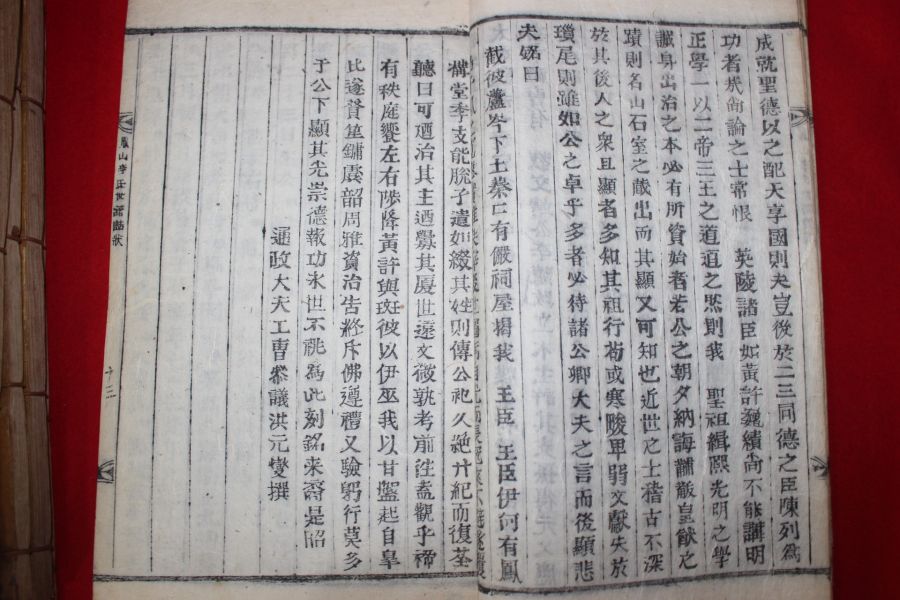 成就聖德以之配天享國則夫豈後於二三同德之臣陳列爲
功者哉尙論之士常恨 英陵諸臣如黃許巍績尙不能講明
正學一以二帝三王之道道之然則我 聖祖緝熙光明之學
誠身出治之本必有所資始者若公之朝夕納誨黼黻皇猷之
蹟則名山石室之藏出而其顯又可知也近世之士稽古不深
於其後人之衆且顯者多知其祖行苟或寒畯單弱文獻失於
瓊尾則雖如公之卓乎多者必待諸公卿大夫之言而後顯悲
夫銘曰
截彼蘆岑下土蔡口有儼祠屋揭我 王臣 王臣伊何有鳳
構堂季支能脫子遺如綴其姓則傳公祀久絶廾紀而復荃
聽曰可廼治其主廼釁其厦世遠文微孰考前徃盍觀乎禘
有秩庭饗左右陟降黃許與斑彼以伊巫我以甘盤起自皐
比遂賛筀鏞囊韶周雅資治吿終斥佛遵禮又驗躬行莫多
于公下顯其光崇德報功永世不祧爲此刻銘來裔是昭
通政大夫工曹叅議洪元燮撰
鳳山李氏世譜誌狀
十三